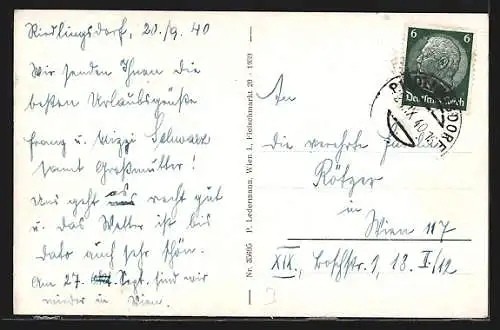 Riedlingsdorf, 20./9. 40
Wir senden Ihnen die
besten Urlaubsgrüße
Franz u. Mizzi Schwarz
samt Großmutter!
Uns geht es recht gut
u. das Wetter ist bis
dato auch sehr schön.
Am 27. Sept. sind wir
wieder in Wien.
Nr. 35895 P. Ledermann, Wien I, Fleischmarkt 20 - 1939
6 6
Deutsches Reich
IX 40
DORF
An
die verehrte Familie
Rötzer
in
Wien 117
XIX., 1, 18. II/12
3